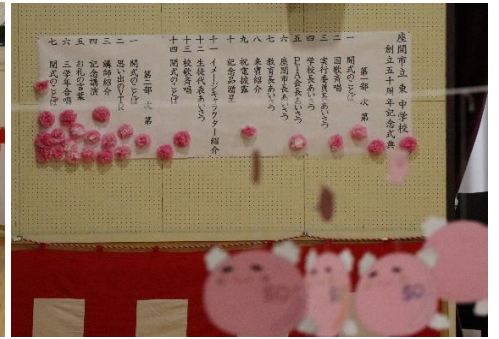 座間市立東中学校
創立五十周年記念式典
第一部 次 第
一 開式のことば
二 国歌斉唱
三 実行委員長あいさつ
四 学校長あいさつ
五 PTA会長あいさつ
六 座間市長あいさつ
七 教育長あいさつ
八 来賓紹介
九 祝電披露
十 記念品贈呈
十一 イメージキャラクター紹介
十二 生徒代表あいさつ
十三 校歌斉唱
十四 閉式のことば
第二部 次 第
一 開式のことば
二 思い出のVTR
三 講師紹介
四 記念講演
五 お礼の言葉
六 三学年合唱
七 閉式のことば
50
50